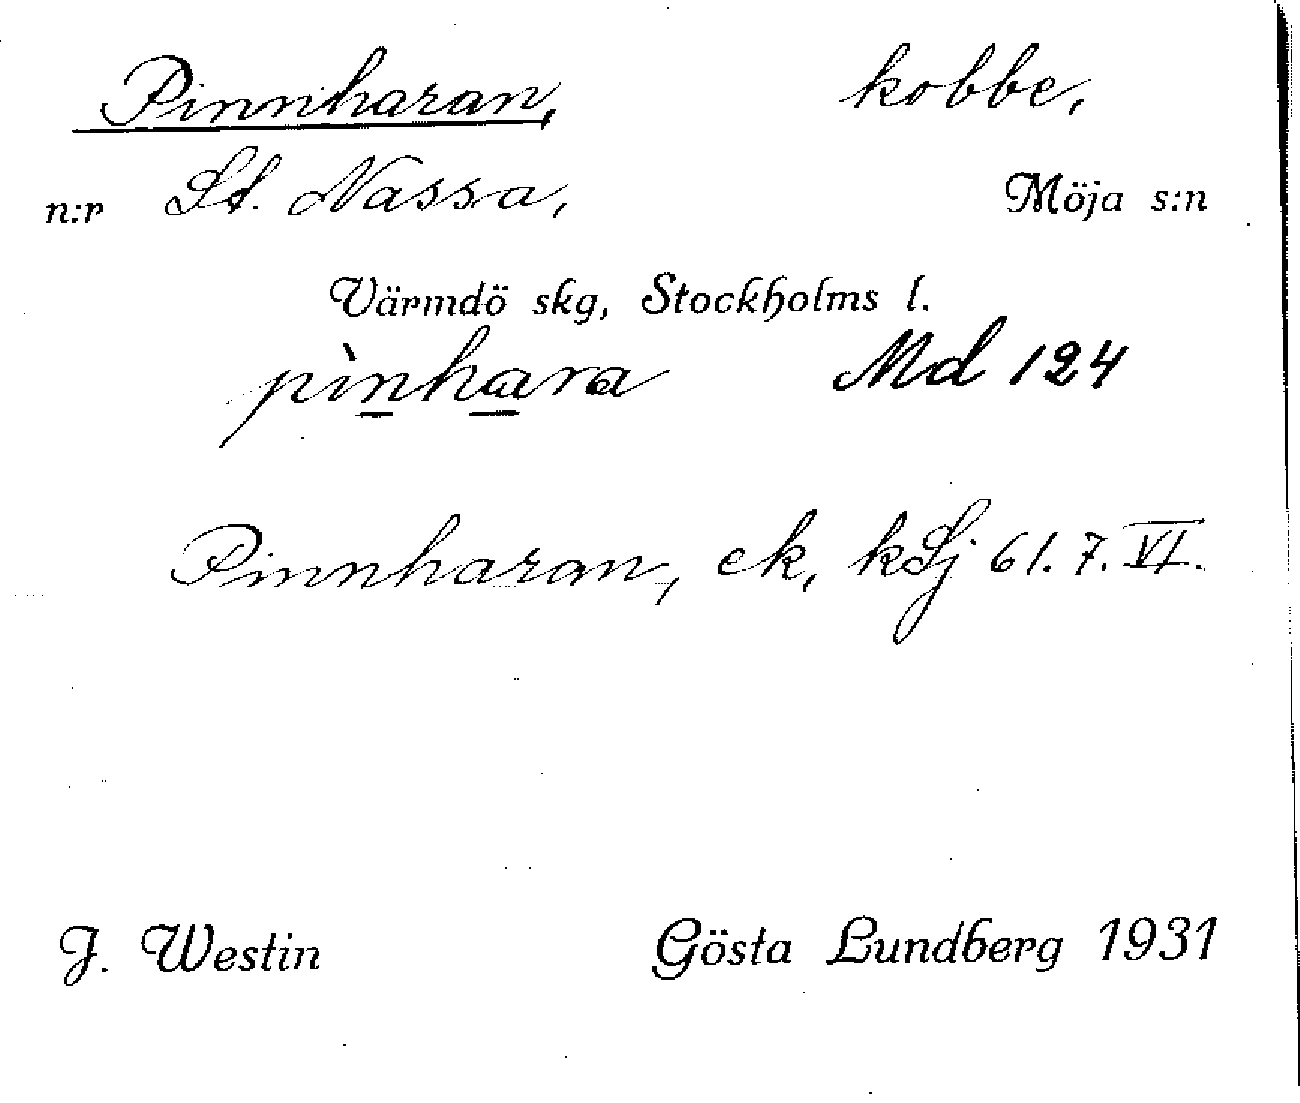 Pinnharan, kobbe,
n:r St. Nassa, Möja s:n
Värmdö skg, Stockholms l.
pìnhara Md 124
Pinnharan, ek, kSj 61. 7. VI.
J. Westin Gösta Lundberg 1931